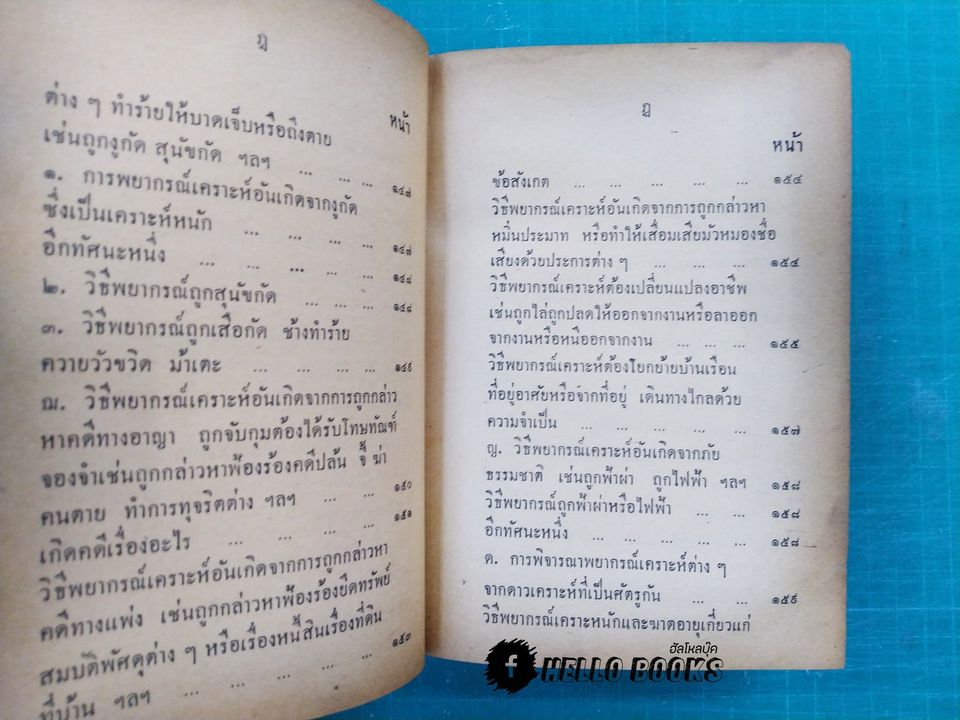 ฎ
หน้า
ต่าง ๆ ทำร้ายให้บาดเจ็บหรือถึงตาย
เช่นถูกงูกัด สุนัขกัด ฯลฯ ... ... ... ๑๔๗
๑. การพยากรณ์เคราะห์อันเกิดจากงูกัด
ซึ่งเป็นเคราะห์หนัก ... ... ... ... ๑๔๗
อีกทัศนะหนึ่ง ... ... ... ... ... ๑๔๘
๒. วิธีพยากรณ์ถูกสุนัขกัด ... ... ... ๑๔๘
๓. วิธีพยากรณ์ถูกเสือกัด ช้างทำร้าย
ควายวัวขวิด ม้าเตะ ... ... ... ... ๑๔๙
ฌ. วิธีพยากรณ์เคราะห์อันเกิดจากการถูกกล่าว
หาคดีทางอาญา ถูกจับกุมต้องได้รับโทษทัณฑ์
จองจำเช่นถูกกล่าวหาฟ้องร้องคดีปล้น จี้ ฆ่า
คนตาย ทำการทุจริตต่าง ๆ ฯลฯ ... ... ๑๕๐
เกิดคดีเรื่องอะไร ... ... ... ... ๑๕๑
วิธีพยากรณ์เคราะห์อันเกิดจากการถูกกล่าวหา
คดีทางแพ่ง เช่นถูกกล่าวหาฟ้องร้องยึดทรัพย์
สมบัติพัสดุต่าง ๆ หรือเรื่องหนี้สินเรื่องที่ดิน
ที่บ้าน ฯลฯ ... ... ... ... ๑๕๓
ฏ
หน้า
ข้อสังเกต ... ... ... ... ... ๑๕๔
วิธีพยากรณ์เคราะห์อันเกิดจากการถูกกล่าวหา
หมิ่นประมาท หรือทำให้เสื่อมเสียมัวหมองชื่อ
เสียงด้วยประการต่าง ๆ ... ... ... ๑๕๔
วิธีพยากรณ์เคราะห์ต้องเปลี่ยนแปลงอาชีพ
เช่นถูกไล่ถูกปลดให้ออกจากงานหรือลาออก
จากงานหรือหนีออกจากงาน ... ... ... ๑๕๕
วิธีพยากรณ์เคราะห์ต้องโยกย้ายบ้านเรือน
ที่อยู่อาศัยหรือจากที่อยู่ เดินทางไกลด้วย
ความจำเป็น ... ... ... ... ... ๑๕๗
ญ. วิธีพยากรณ์เคราะห์อันเกิดจากภัย
ธรรมชาติ เช่นถูกฟ้าผ่า ถูกไฟฟ้า ฯลฯ ๑๕๘
วิธีพยากรณ์ถูกฟ้าผ่าหรือไฟฟ้า ... ... ๑๕๘
อีกทัศนะหนึ่ง ... ... ... ... ... ๑๕๘
ด. การพิจารณาพยากรณ์เคราะห์ต่าง ๆ
จากดาวเคราะห์ที่เป็นศัตรูกัน ... ... ๑๕๙
วิธีพยากรณ์เคราะหนักและฆาตอายุเกี่ยวแก่
ฮัลโหลบุ๊ค
f HELLO BOOKS